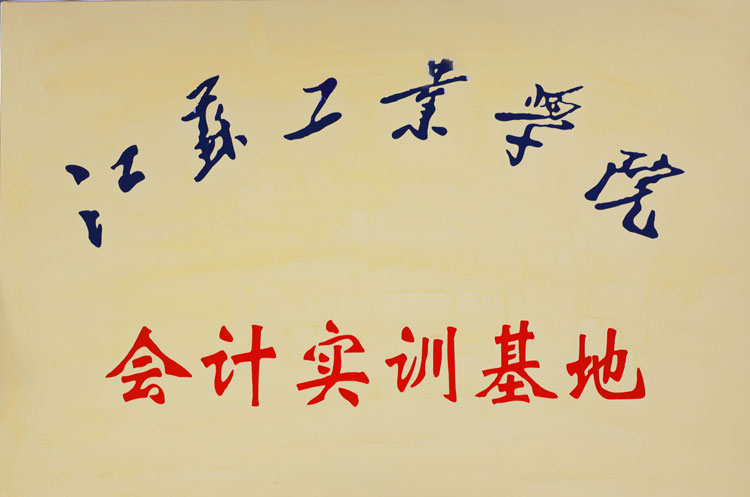 江蘇工業学院
会计实训基地